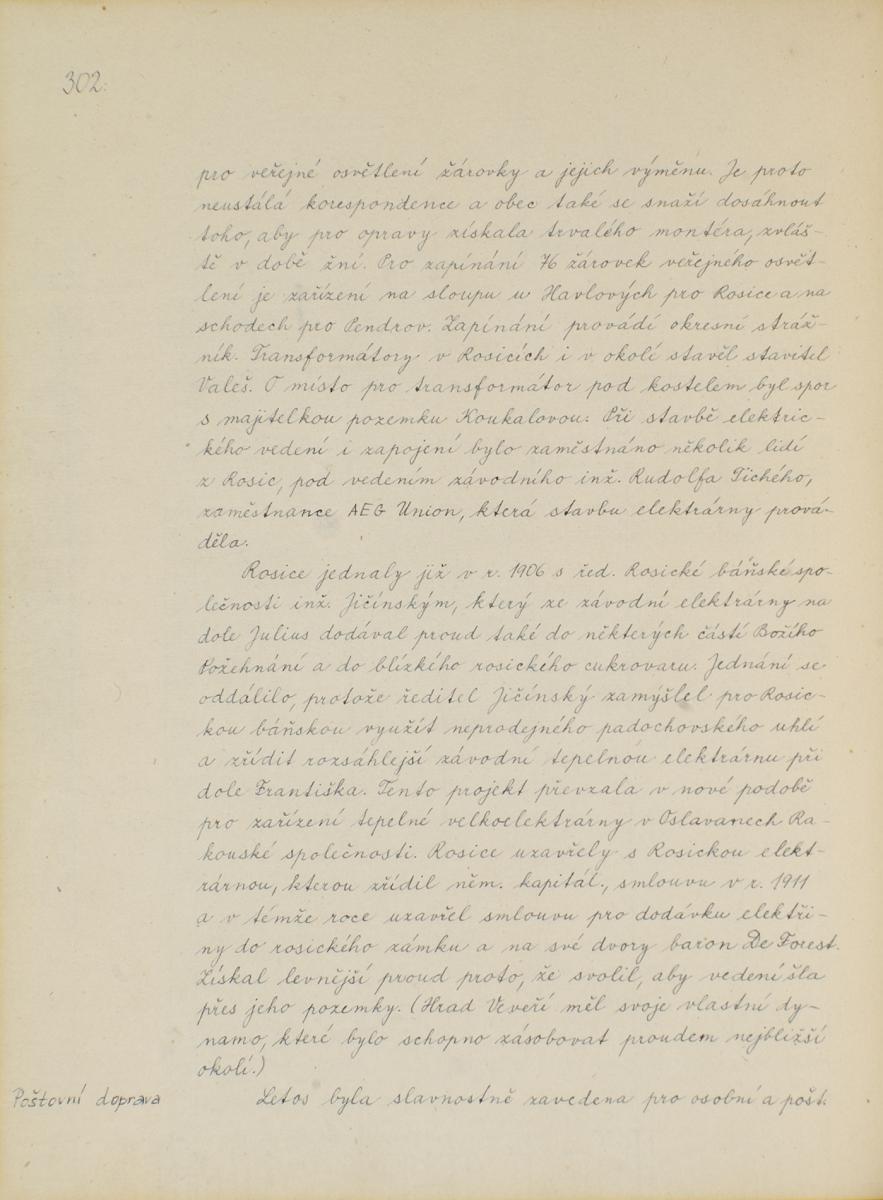 302.
pro veřejné osvětlení žárovky a jejich výměnu. Je proto
neustálá korespondence a obec také se snaží dosáhnout
toho, aby pro opravy získala trvalého montéra, zvláš-
tě v době žní. Pro zapínání 76 žárovek veřejného osvět-
lení je zařízení na sloupu u Havlových pro Rosice a na
schodech pro Pendrov. Zapínání provádí okresní stráž-
ník. Transformátory v Rosicích i v okolí stavěl stavitel
Valeš. O místo pro transformátor pod kostelem byl spor
s majitelkou pozemku Koukalovou. Při stavbě elektric-
kého vedení i zapojení bylo zaměstnáno několik lidí
z Rosic, pod vedením závodního inž. Rudolfa Tichého,
zaměstnance AEG Union, která stavbu elektrárny prová-
děla.
Rosice jednaly již v r. 1906 s řed. Rosické báňské spo-
lečnosti inž. Jičínským, který ze závodní elektrárny na
dole Julius dodával proud také do některých částí Božího
Požehnání a do blízkého rosického cukrovaru. Jednání se
oddálilo, protože ředitel Jičínský zamýšlel pro Rosic-
kou báňskou využít neprodejného padochovského uhlí
a zřídit rozsáhlejší závodní tepelnou elektrárnu při
dole Františka. Tento projekt převzala v nové podobě
pro zařízení tepelné velkoelektrárny v Oslavanech Ra-
kouské společnosti. Rosice uzavřely s Rosickou elekt-
rárnou, kterou zřídil něm. kapitál., smlouvu v r. 1911
a v témže roce uzavřel smlouvu pro dodávku elektři-
ny do rosického zámku a na své dvory baron De Forest.
Získal levnější proud proto, že svolil, aby vedení šla
přes jeho pozemky. (Hrad Veveří měl svoje vlastní dy-
namo, které bylo schopno zásobovat proudem nejbližší
okolí.)
Poštovní doprava
Letos byla slavnostně zavedena pro osobní a pošt.